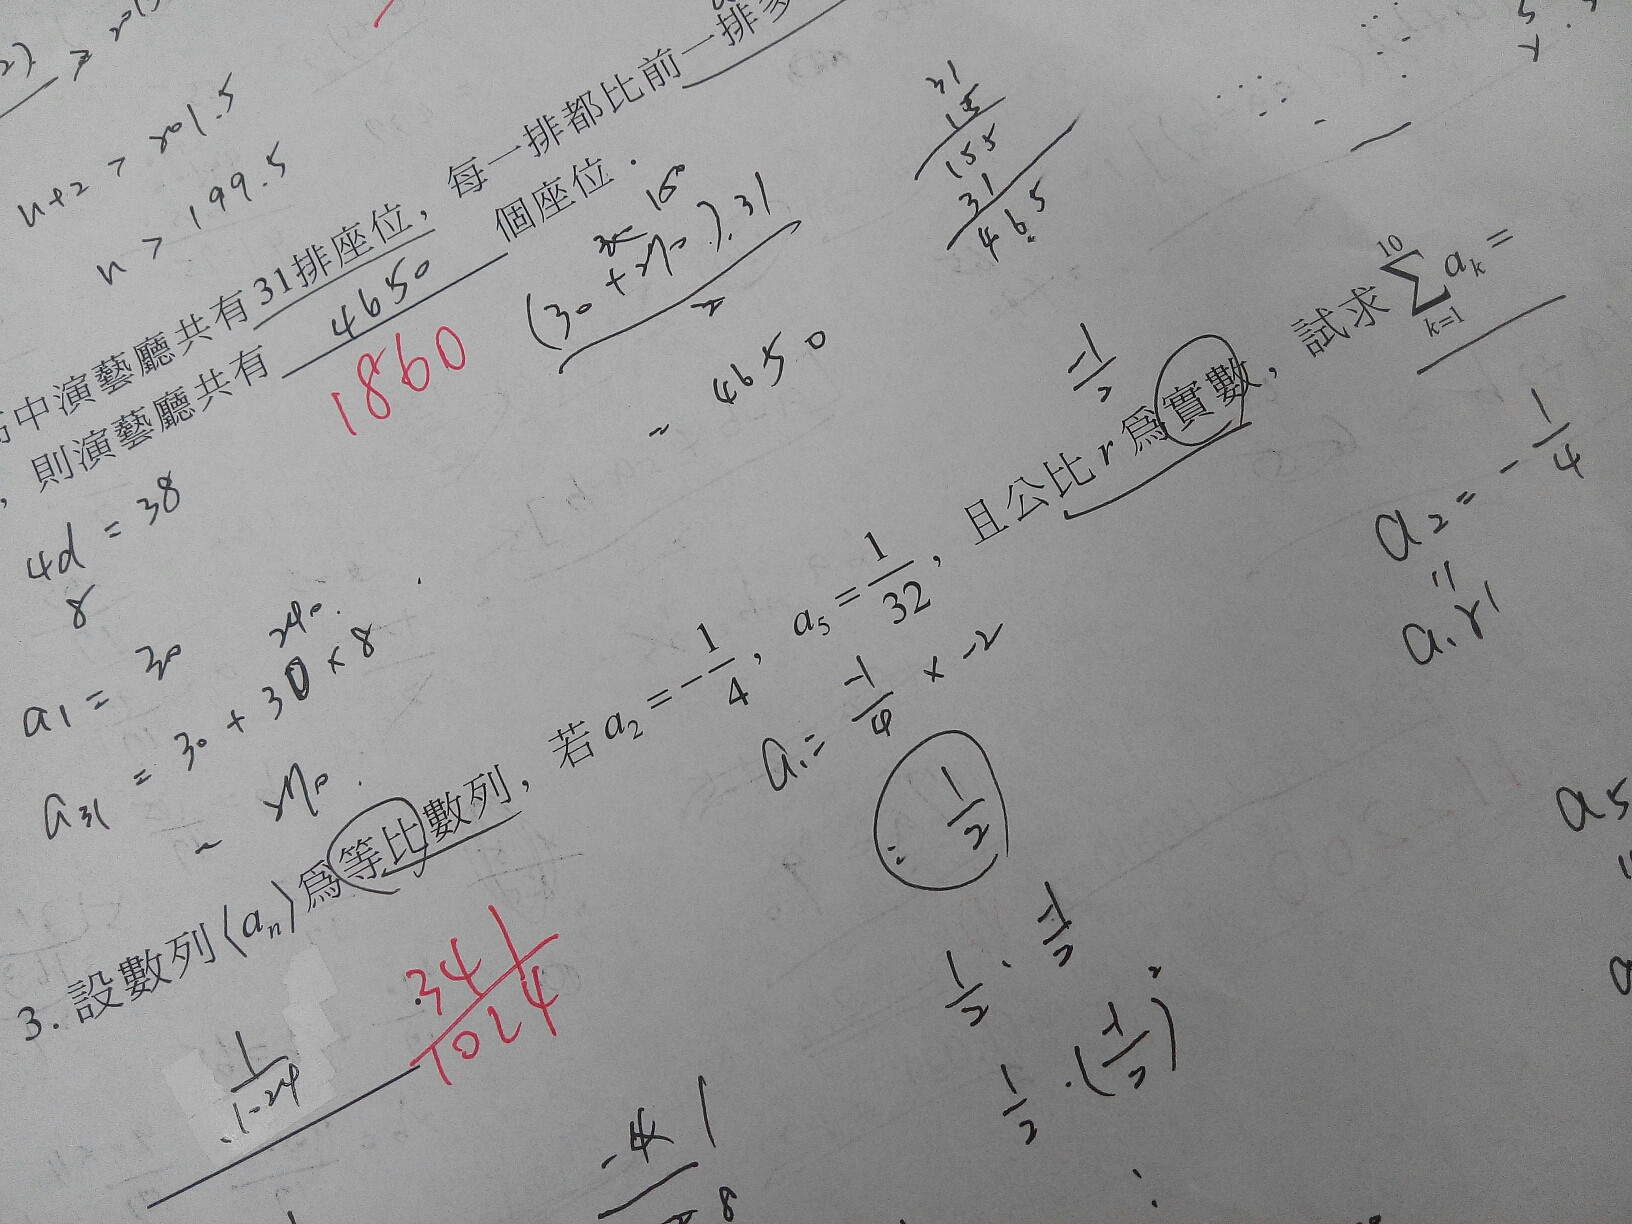 n+2 > 201.5
n > 199.5
中演藝廳共有31排座位，每一排都比前一排多
，則演藝廳共有 4650 個座位．
1860
(30+270).31
2
= 4650
31
15
155
31
465
4d = 38
8
a1 = 30
240
a31 = 30 + 30 × 8
= 270
3. 設數列⟨an⟩爲等比數列，若 a2 = -1/4，a5 = 1/32，且公比 r 爲實數，試求 \sum_{k=1}^{10} ak =
-1/2
1/1024
341/1024
a1 = -1/4 × -2
= 1/2
1/2 . -1/2
1/2 . (-1/2)²
a2 = -1/4
"
a1r1
a5